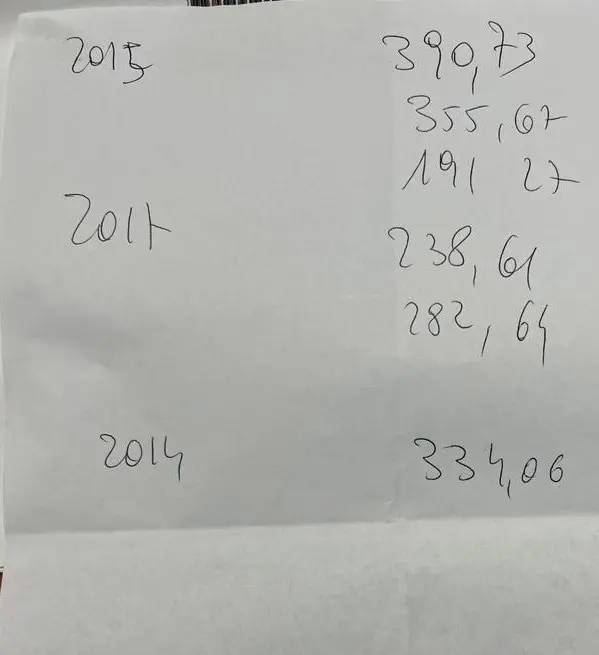 2015 390,73
355,67
191 27
2017 238,61
282,64
2014 334,06